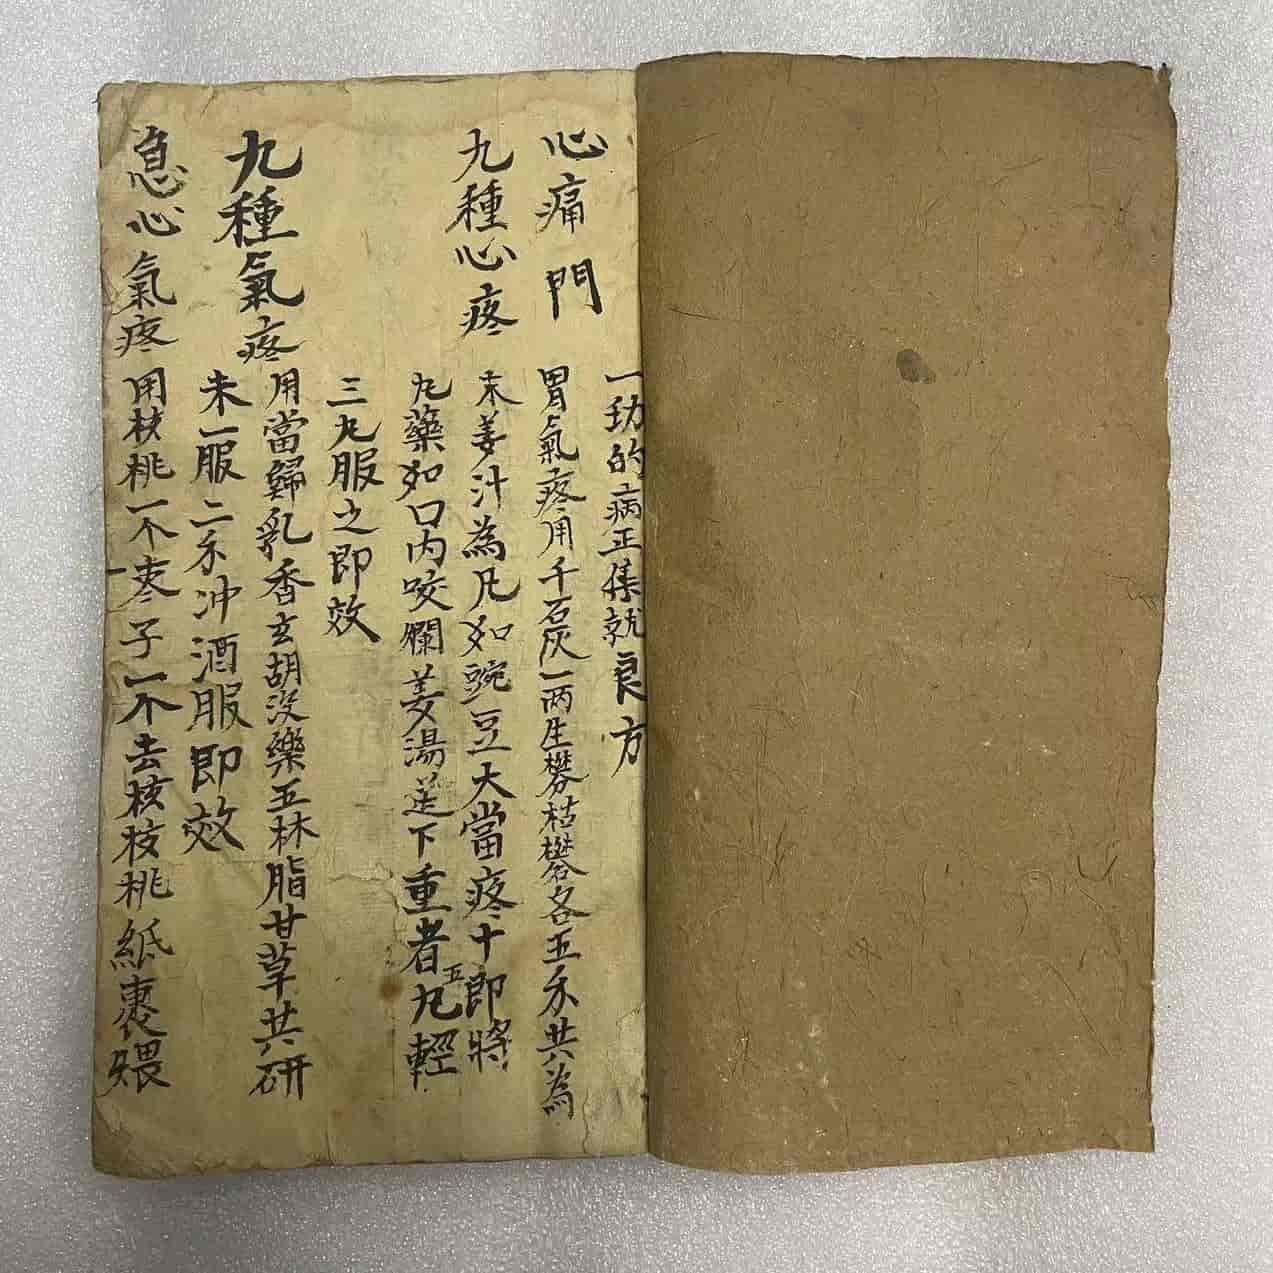 一劝的病正集就良方
心痛門
胃氣疼用千石灰一两生礬枯礬各五禾共為
九種心疼
末姜汁為凡如豌豆大當疼十即將
九藥如口内咬爛姜湯送下重者五九輕
三九服之即效
九種氣疼
用當歸乳香玄胡没藥五林脂甘草共研
末一服二禾冲酒服即效
急心氣疼
用核桃一个枣子一个去核核桃紙裹煨